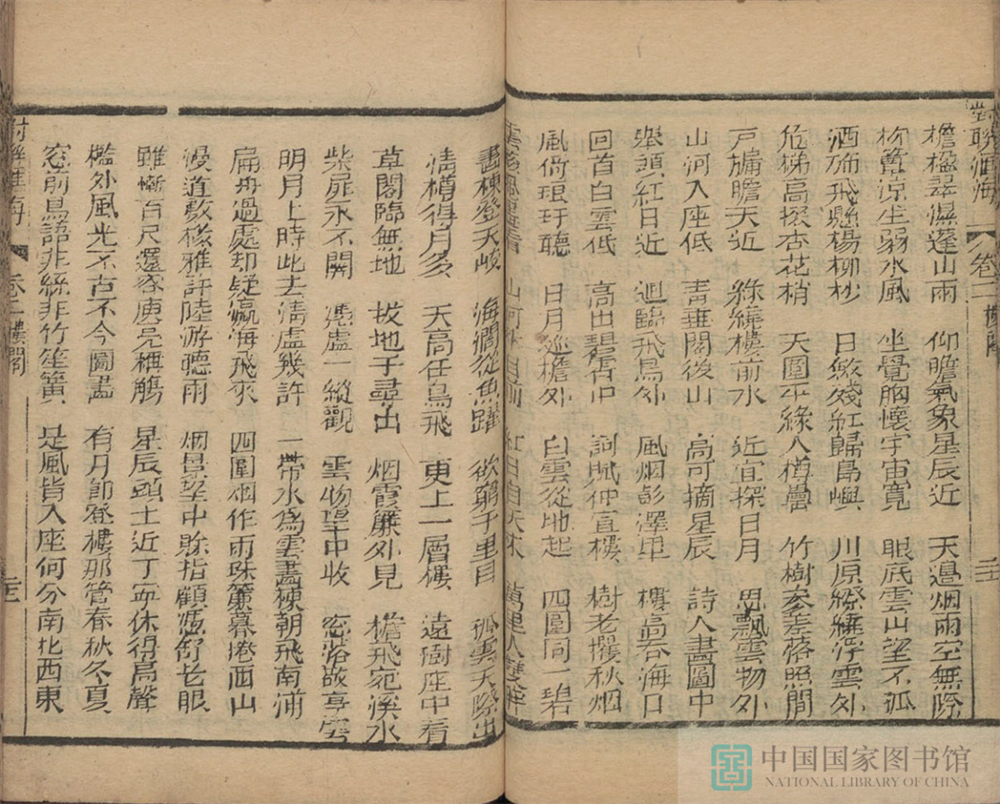 對聯滙海 卷二 樓閣 二十二
檐楹翠濕蓬山雨 仰瞻氣象星辰近 天邊烟雨空無際
枕簟凉生弱水風 坐覺胸懷宇宙寬 眼底雲山望不孤
酒斾飛懸楊柳杪 日斂殘紅歸島嶼 川原繚繞浮雲外
危梯高探杏花梢 天圍平綠入樽罍 竹樹參差落照間
戸牖瞻天近 綠繞樓前水 近宜探日月 思飄雲物外
山河入座低 靑垂閣後山 高可摘星辰 詩人畫圖中
舉頭紅日近 迥臨飛鳥外 風烟彭澤里 樓高春海口
回首白雲低 高出碧雲中 詞賦仲宣樓 樹老擢秋烟
風倚琅玕聽 日月巡檐外 白雲從地起 四圍同一碧
山河 目前 紅日自天來 萬里人雙
畵棟登天峻 海濶從魚躍 欲窮千里目 孤雲天際出
淸樽得月多 天高任鳥飛 更上一層樓 遠樹座中看
草閣臨無地 拔地千尋出 烟霞簾外見 檐飛宛溪水
柴扉永不關 憑虛一縱觀 雲物望中收 窓落敬亭雲
明月上時此去淸虛幾許 一帶水爲雲畵棟朝飛南浦
扁舟過處却疑瀛海飛來 四圍烟作雨珠簾暮捲西山
漫道敲檐雅許陸游聽雨 烟景望中賒指顧憑舒老眼
雖慚百尺還邀庾亮稱觴 星辰頭上近丁寧休得高聲
檻外風光不古不今圖畵 有月卽登樓那管春秋冬夏
窓前鳥語非絲非竹笙簧 是風皆入座何分南北西東
對聯滙海 卷二 樓閣 二十三
中国国家图书馆
NATIONAL LIBRARY OF CHINA